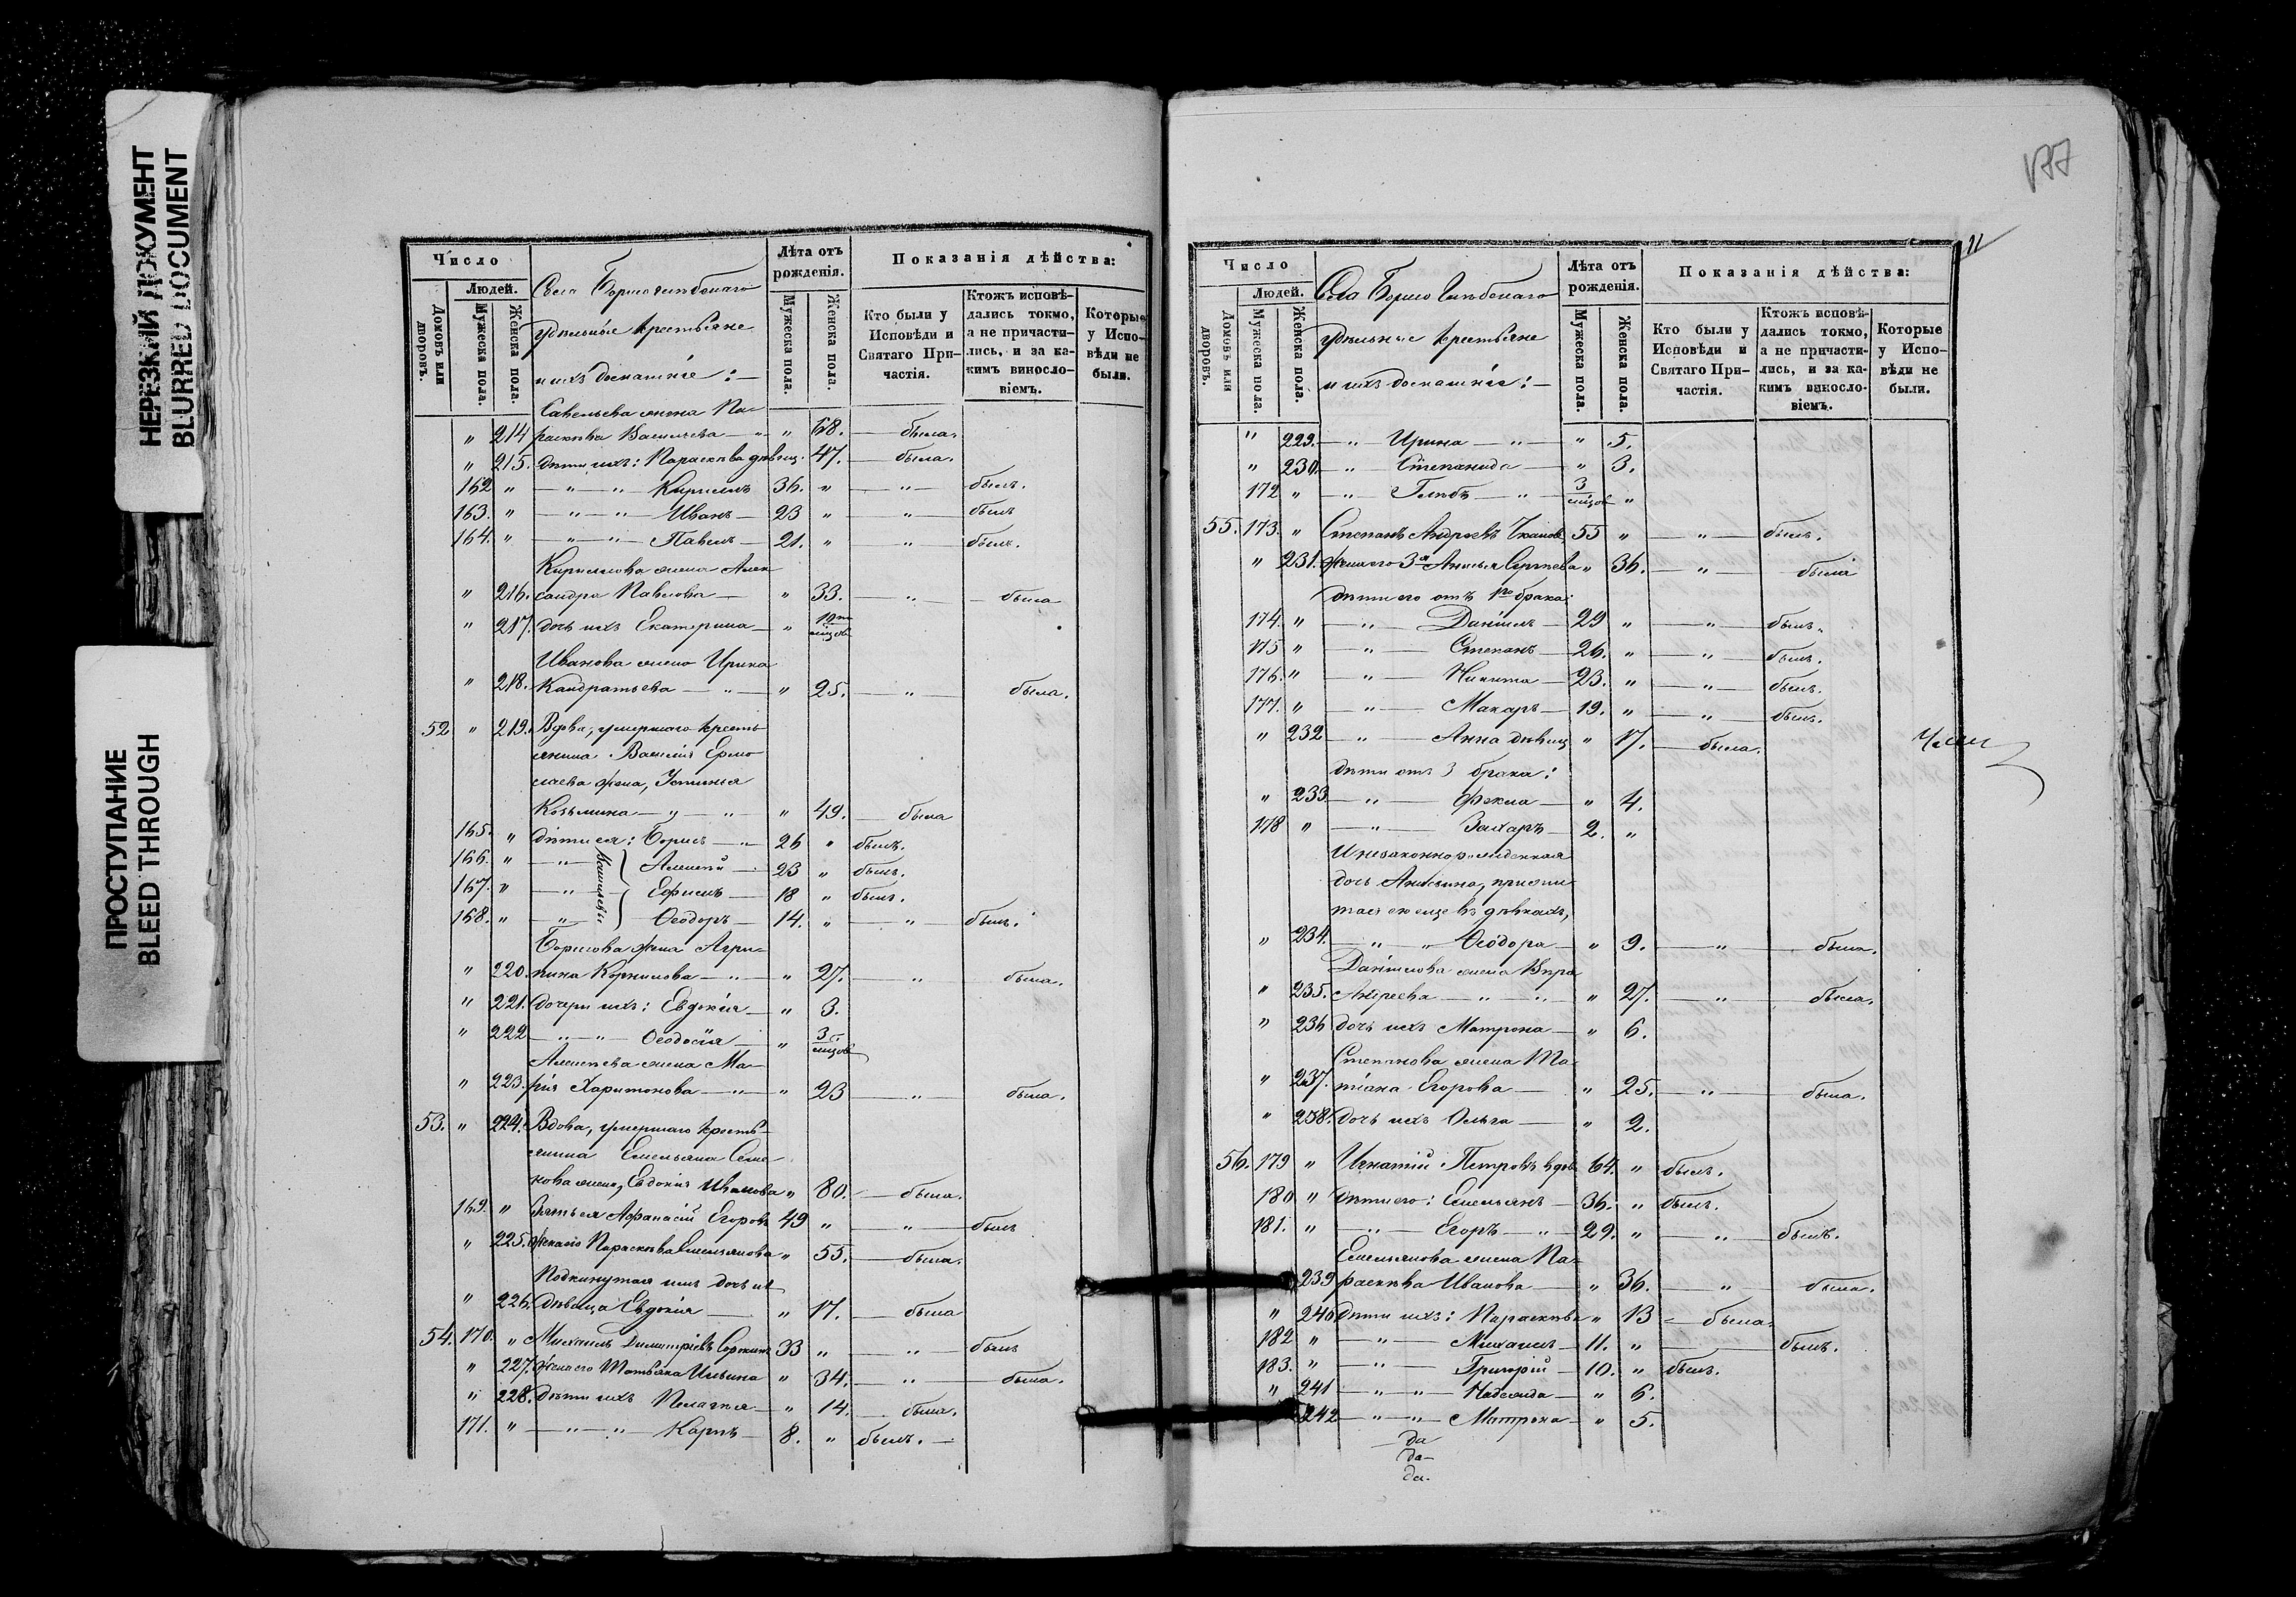 НЕРЕЗКИЙ ДОКУМЕНТ
BLURRED DOCUMENT
ПРОСТУПАНИЕ
BLEED THROUGH
Число
Людей.
Домовъ или дворовъ.
Мужеска пола.
Женска пола.
Села Борисоглѣбскаго
удѣльные крестьяне
и ихъ домашніе: —
Лѣта отъ рожденія.
Мужеска пола.
Женска пола.
Показанія дѣйства:
Кто были у Исповѣди и Святаго Причастія.
Ктожъ исповѣдались токмо, а не причастились, и за какимъ винословіемъ.
Которые у Исповѣди не были.
Савельева жена Па-
" 214 раскѣва Васильева — " — " 68. — была.
" 215. дѣти ихъ: Параскѣва дѣвиц. 47. — была.
162 " — " — " — Кирилъ 36. " — " — былъ.
163. " — " — " — Иванъ — 23 " — " — былъ
164. " — " — " — Павелъ — 21. " — " — былъ.
Кирилова жена Алек
" 216. сандра Павлова — " 33. — " — была
" 217. дочь ихъ Екатерина — "
Иванова жена Ирина
" 218. Кандратьева — " — " 25. — " — была.
52 " 219. Вдова, умершаго кресть
янина Василія Ермо
лаева жена, Устинья
Козьмина — " — " — " 49. — была
165. " дѣти ея: Борисъ — " 26 " былъ.
166. " — " — Алексѣй — 23 " былъ.
167. " — " — Васильевы Ефимъ — 18 " былъ.
168. " — " — Ѳеодоръ — 14. " — " — былъ.
Борисова жена Агри-
" 220. пина Корнилова — " — " 27. — " — была.
" 221. дочери ихъ: Евдокія — " 3.
" 222 — " — " — Ѳеодосія — " 3 мѣсцов
Алексѣева жена Ма-
" 223. рія Харитонова — " — " 23 — " — была.
53. " 224. Вдова, умершаго кресть-
янина Емельяна Семе
нова жена, Евдокія Иванова " 80. — была.
169. " Зять ея Афанасій Егоровъ 49 " — " — былъ
" 225. Жена его Параскѣва Емельянова " 55. — была.
Подкинутая имъ дочь ихъ
" 226. дѣвица Евдокія — " 17. — была
54. 170. " Михаилъ Димитріевъ Сорокинъ 33 " — " — былъ
" 227. Жена его Татьяна Ильина " 34. — " — была.
" 228. Дѣти ихъ Пелагея — " 14. — была.
171. " — " — " — Карпъ — 8. " былъ. —
177
11
Число
Людей.
Домовъ или дворовъ.
Мужеска пола.
Женска пола.
Села Борисоглѣбскаго
удѣльные крестьяне
и ихъ домашніе: —
Лѣта отъ рожденія.
Мужеска пола.
Женска пола.
Показанія дѣйства:
Кто были у Исповѣди и Святаго Причастія.
Ктожъ исповѣдались токмо, а не причастились, и за какимъ винословіемъ.
Которые у Исповѣди не были.
" 229. — " — Ирина — " — " 5.
" 230. — " — Степанида — " 3.
172 " — " — Глѣбъ — " — 3 мѣсцов "
55. 173. " Степанъ Андреевъ 55 " — " — былъ.
" 231. Жена его 3я Анисья Сергѣева " 36. — " — была
Дѣти его отъ 1го брака:
174. " — " — Даніилъ — 29 " — " — былъ.
175 " — " — Степанъ — 26. " — " — былъ.
176. " — " — Никита — 23. " — " — былъ.
177. " — " — Макаръ — 19. " — " — былъ.
" 232 — " — Анна дѣвиц " 17. — была.
дѣти отъ 3 брака:
" 233 — " — Ѳекла — " 4.
178 " — " — Захаръ — 2. "
И незаконнорожденная
дочь Анисьина, прижи
тая ею еще въ дѣвкахъ,
" 234. — " — " Ѳеодора — " 9. — " — была.
Даніилова жена Вѣра
" 235. Андреева — " — " — " 27. — " — была.
" 236 дочь ихъ Матрона — " 6.
Степанова жена Та-
" 237. тіана Егорова — " 25. — " — была.
" 238. Дочь ихъ Ольга — " 2.
56. 179 " Игнатій Петровъ вдов 64. " былъ.
180 " Дѣти его: Емельянъ — 36. " былъ.
181. " — " — Егоръ — " — 29. " — " — былъ.
Емельянова жена Па-
239 раскѣва Иванова — " 36. — " — была.
" 240 Дѣти ихъ: Параскѣва " 13 — была.
182 " — " — Михаилъ — 11. " — былъ.
183. " — " — Григорій — 10. " былъ.
" 241 — " — " — Надежда — " 6.
242 — " — " — Матрона — " 5.
да
да-
да.